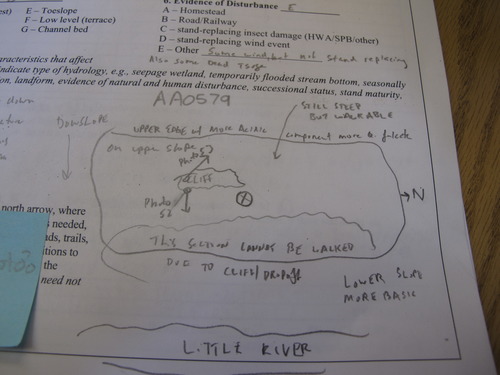 est) E – Toeslope
F – Low level (terrace)
G – Channel bed
6. Evidence of Disturbance E
A – Homestead
B – Road/Railway
C – stand-replacing insect damage (HWA/SPB/other)
D – stand-replacing wind event
E – Other Some wind, but not stand replacing
Also some dead
aracteristics that affect
indicate type of hydrology, e.g., seepage wetland, temporarily flooded stream bottom, seasonally
on, landform, evidence of natural and human disturbance, successional status, stand maturity,
AA0579
down
DOWNSLOPE
STILL STEEP
BUT WALKABLE
UPPER EDGE of MORE ACIDIC component more
on upper slope
Photo 52
CLIFF
Photo
53
N
north arrow, where
s needed,
ds, trails,
itions to
the
need not
THIS SECTION CANNOT BE WALKED
DUE TO CLIFF/DROPOFF
LOWER SLOPE
MORE BASIC
LITTLE RIVER